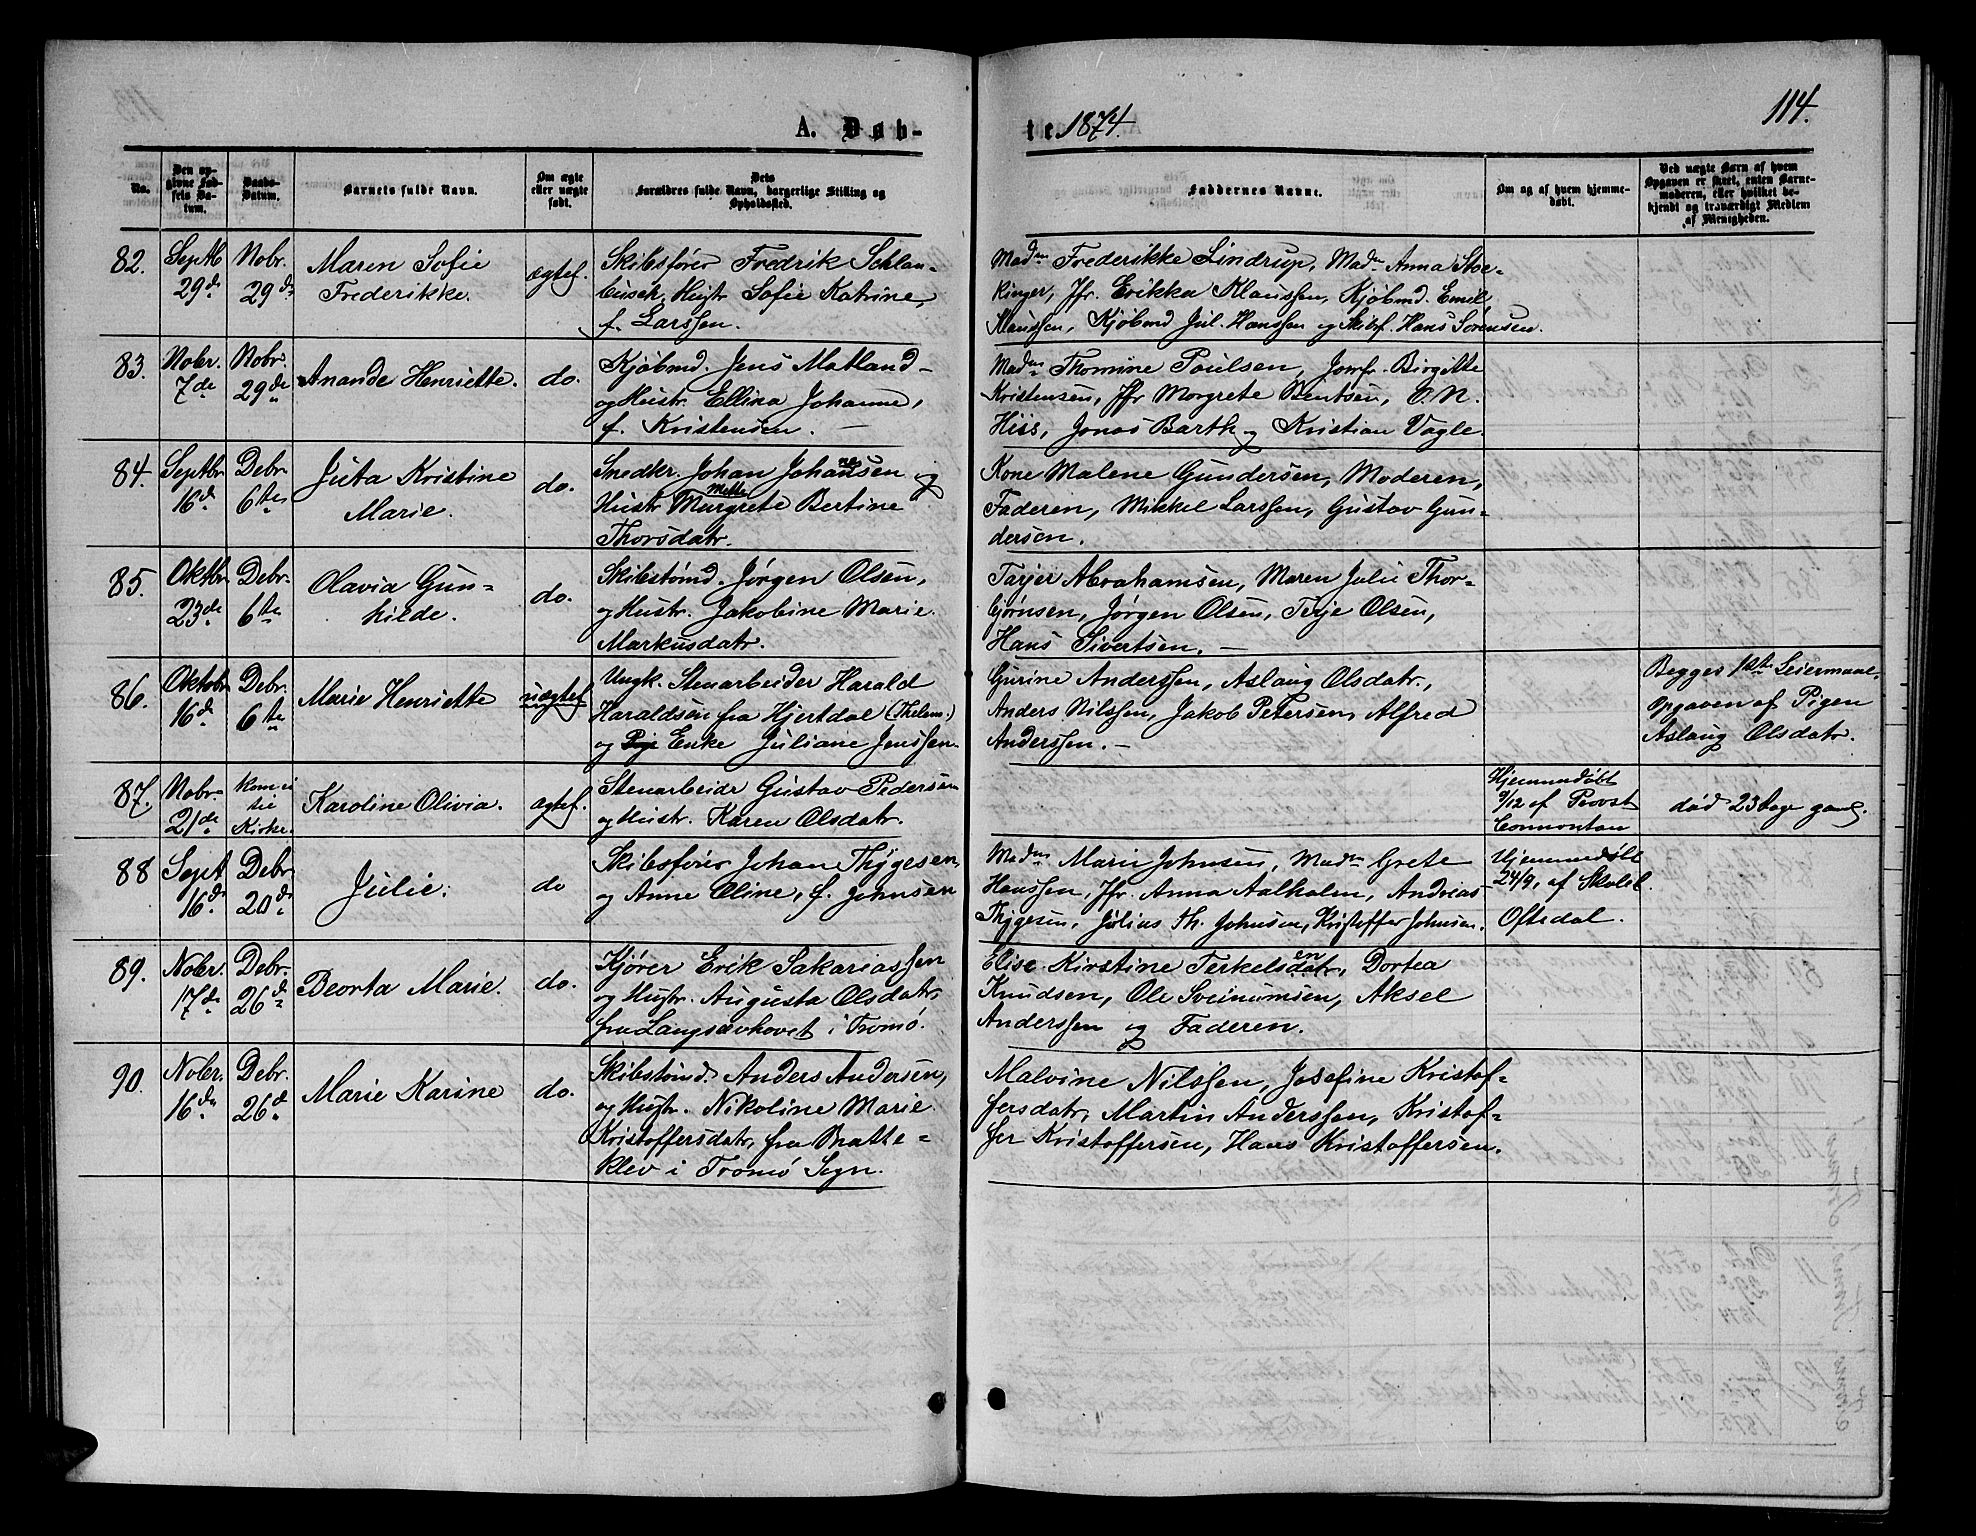 114.
A. Døb-
te 1874.
No.
Den op-
givne Fød-
sels Da-
tum.
Daabs-
Datum.
Barnets fulde Navn.
Om ægte
eller uægte
født.
Dets
Forældres fulde Navn, borgerlige Stilling og
Opholdssted.
Faddernes Navne.
Om og af hvem hjemme-
døbt.
Ved uægte Børn af hvem
Opgaven er skeet, enten Barne-
moderen, eller hvilket be-
kjendt og troværdigt Medlem
af Menigheden.
82.
Septb
29de
Nobr.
29de
Maren Sofie
Frederikke.
ægtef.
Skibsfører Fredrik Schlan-
busch, Hustr Sofie Katrine,
f. Larssen.
Madm Frederikke Lindrup, Madm Anna Stoe-
kinger, Jfr. Erikka Klaussen, Kjøbmd. Emil
Klaussen, Kjøbmd Jul. Hanssen og Skibsf. Hans Sørensen.
83.
Nobr.
7de
Nobr.
29de
Anande Henriette.
do.
Kjøbmd. Jens Matland
og Hustr. Ellina Johanne,
f. Kristensen. —
Madm Thomine Poulsen, Jomfr. Birgitte
Kristensen, Jfr Morgrete Bentsen, O. N.
Hiss, Jonas Barth og Kristian Vagle.
84.
Septbr
16d
Debr.
6te
Juta Kristine
Marie.
do.
Snedkr. Johan Johannsen og
Hustr Mette Margrete Bertine
Thorsdatr.
Kone Malene Gundersen, Moderen,
Faderen, Mikkel Larssen, Gustav Gun-
dersen.
85.
Oktbr
23de
Debr.
6te
Olavia Gun-
hilde.
do.
Skibstømd. Jørgen Olsen,
og Hustr. Jakobine Marie
Markusdatr.
Tarjer Abrahamsen, Maren Julie Thor-
bjørnsen, Jørgen Olsen, Terje Olsen,
Hans Sivertsen. —
86.
Oktobr
16d
Debr.
6te
Marie Henriette
uægtef.
Ungk. Stenarbeider Harald
Haraldsen fra Hjertdal (Thelem.)
og Enke Juliane Jenssen.
Gurine Anderssen, Aslaug Olsdatr.,
Anders Nilssen, Jakob Petersen, Alfred
Anderssen. —
Begges 1ste Leiermaal,
Opgaven af Pigen
Aslaug Olsdatr.
87.
Nobr.
21de
Kom ei
til
Kirke.
Karoline Olivia.
ægtef.
Stenarbeidr Gustav Pedersen
og Hustr. Karen Olsdatr.
Hjemmedøbt
9/12 af Provst
Connontan
død 23 Dage gaml.
88
Sept
16de
Debr
20de
Julie.
do
Skibsfører Johan Thygesen,
og Anne Oline, f. Johnsen
Madm Marie Johnsen, Madm Grete
Hanssen, Jfr. Anna Aalholm, Andreas
Thygesen, Julius Th. Johnsen, Kristoffer Johnsen.
Hjemmedøbt
24/9, af Skolel.
Oftedal.
89.
Nobr.
17de
Debr.
26de
Deorta Marie.
do.
Kjører Erik Sakariassen
og Hustr. Augusta Olsdatr,
fra Langsævhovet i Tromø.
Elise Kirstine Terkelsdatr, Dortea
Knudsen, Ole Sveinumsen, Aksel
Anderssen og Faderen.
90.
Nobr.
16de
Debr.
26d
Marie Karine
do.
Skibstømd. Anders Andersen,
og Hustr. Nikoline Marie
Kristoffersdatr, fra Bratte-
klev i Tromø Sogn.
Malvine Nilssen, Josefine Kristof-
fersdatr, Martin Anderssen, Kristof-
fer Kristoffersen, Hans Kristoffersen.